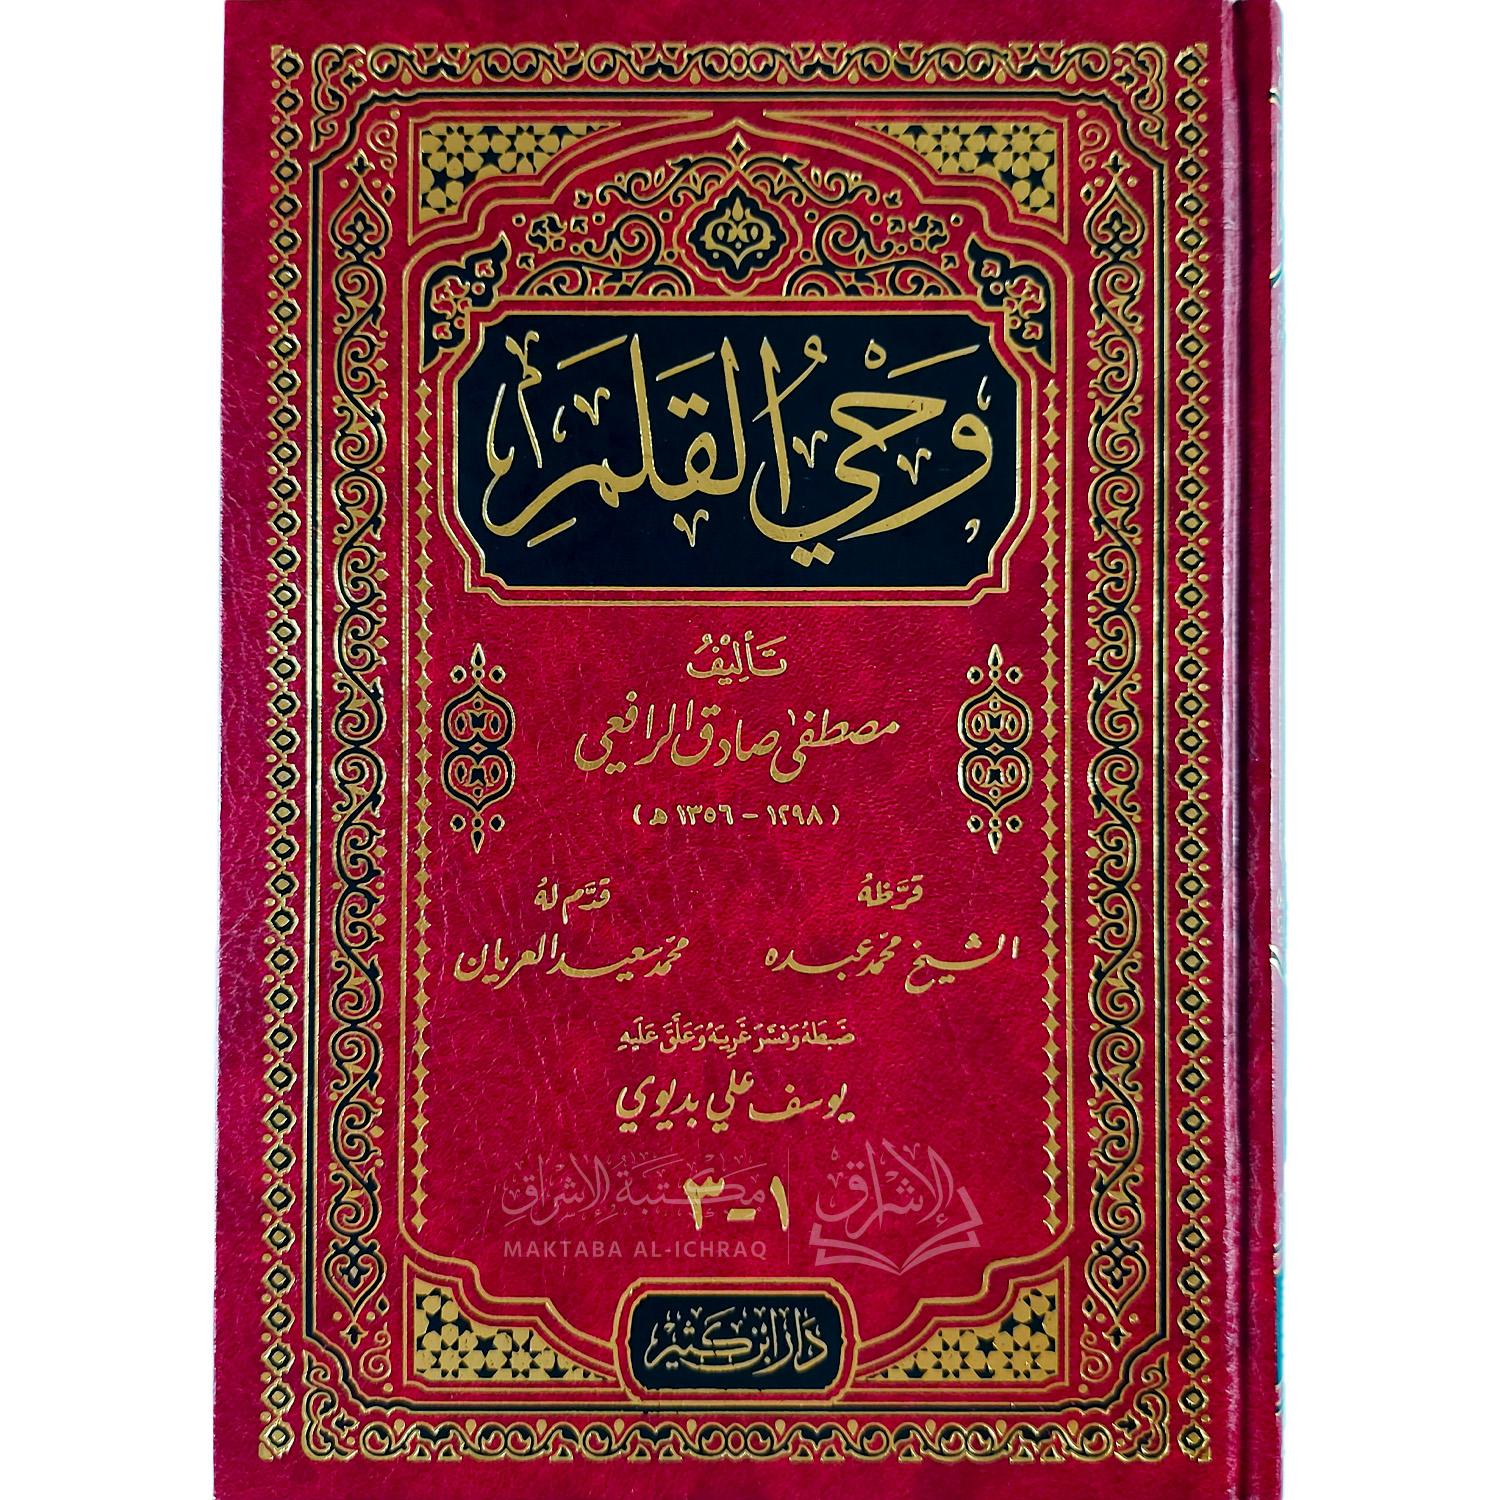 وَحْيُ القَلَمِ
تَأْلِيْفُ
مصطفى صادق الرافعي
(١٢٩٨ - ١٣٥٦ هـ)
قرَّظهُ
الشيخ محمّد عبده
قدَّم لهُ
محمّد سعيد العريان
ضَبطَهُ وَفسَّرَ غَريبَهُ وَعَلَّقَ عَلَيهِ
يوسف علي بديوي
١-٣
مكتبة الإشراق
MAKTABA AL-ICHRAQ
الإشراق
دَار ابن كَثير